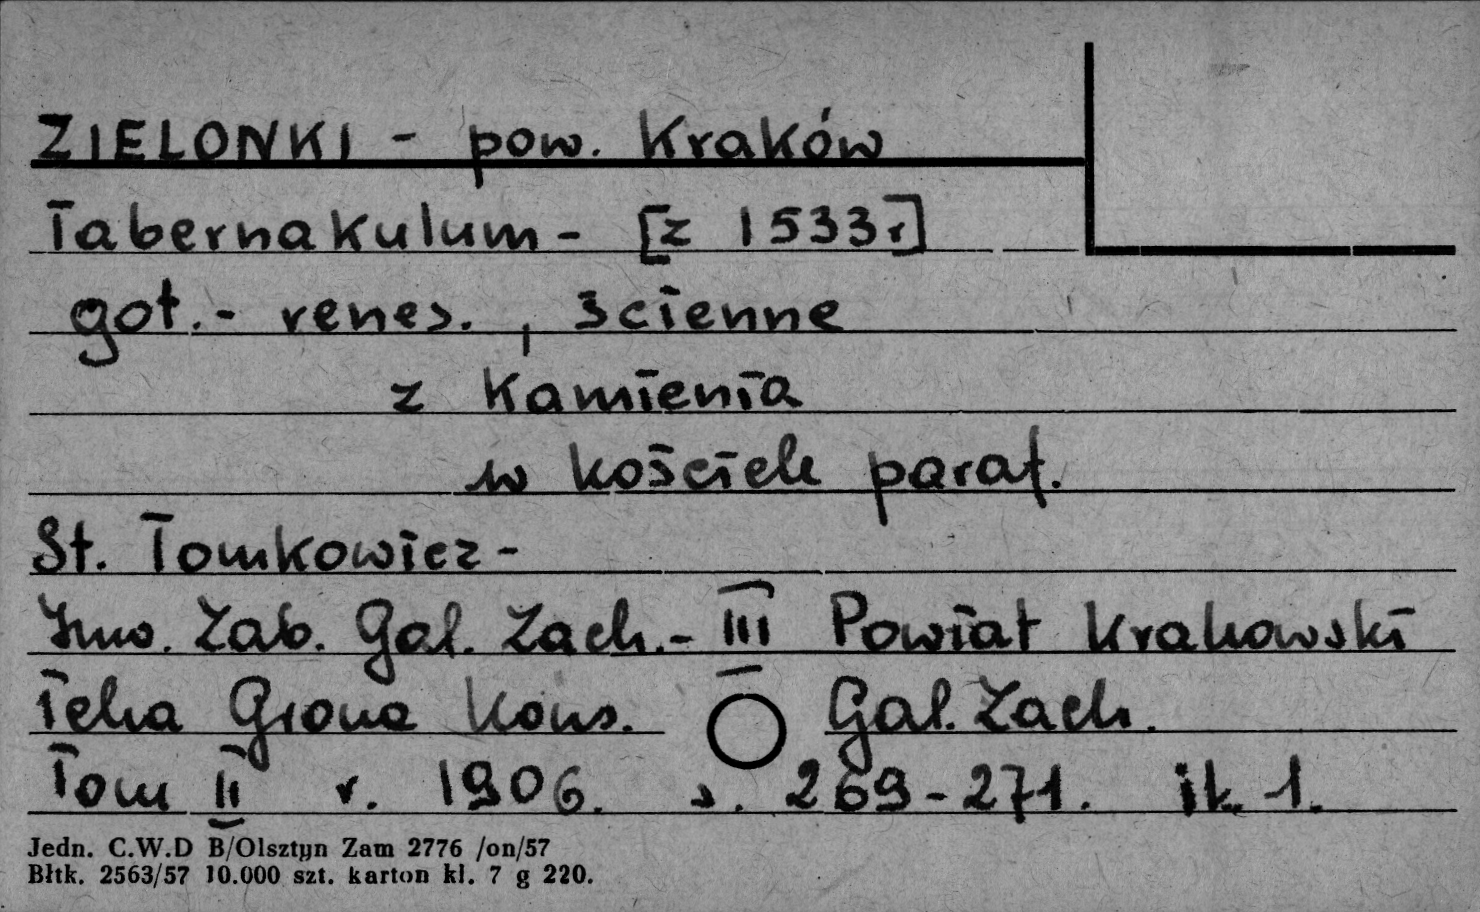 ZIELONKI - pow. Kraków
Tabernakulum - [z 1533r]
got.- renes., ścienne
z kamienia
w kościele paraf.
St. Tomkowicz -
Inw. Zab. Gal. Zach. - III Powiat Krakowski
Teka Grona Kons. Gal. Zach.
Tom II r. 1906. s. 269-271. il. 1.
Jedn. C.W.D B/Olsztyn Zam 2776 /on/57
Błtk. 2563/57 10.000 szt. karton kl. 7 g 220.